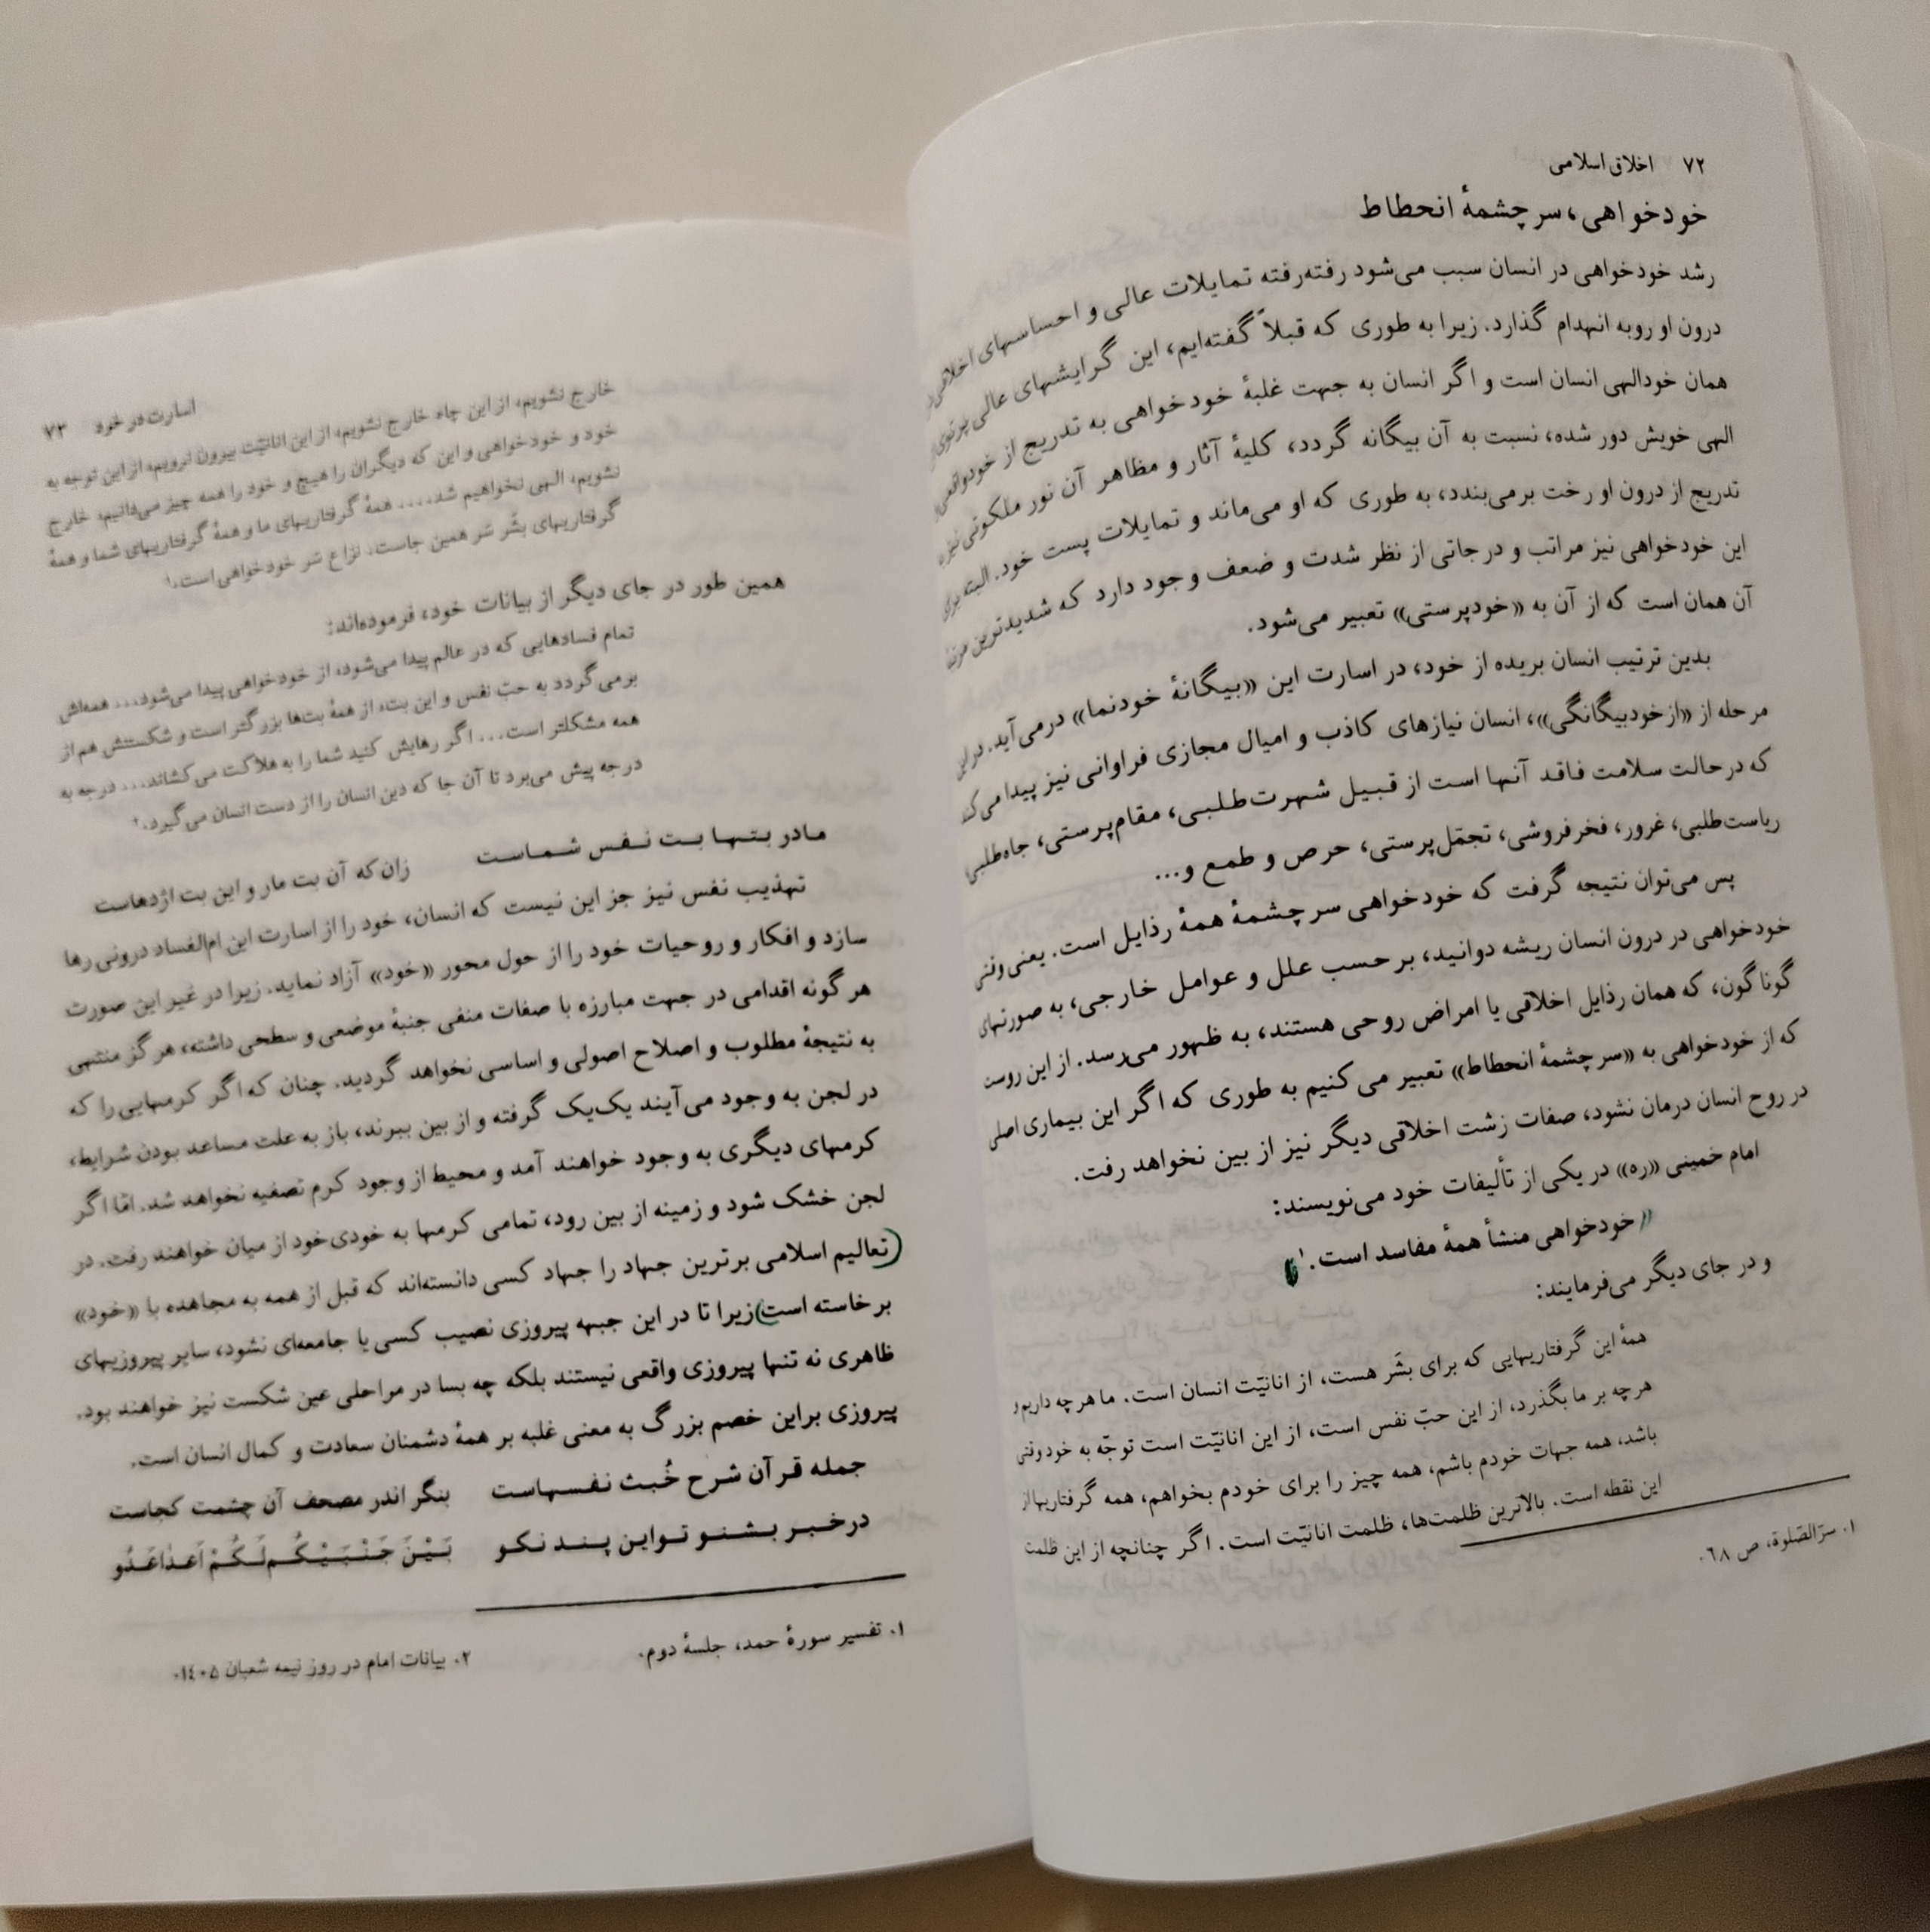 ۷۲ اخلاق اسلامی
خودخواهی، سرچشمهٔ انحطاط
رشد خودخواهی در انسان سبب می‌شود رفته‌رفته تمایلات عالی و احساسهای اخلاقی
درون او روبه انهدام گذارد. زیرا به طوری که قبلاً گفته‌ایم، این گرایشهای عالی پرتوی
همان خودالهی انسان است و اگر انسان به جهت غلبهٔ خودخواهی به تدریج از خودواقعی
الهی خویش دور شده، نسبت به آن بیگانه گردد، کلیهٔ آثار و مظاهر آن نور ملکوتی نیز
تدریج از درون او رخت برمی‌بندد، به طوری که او می‌ماند و تمایلات پست خود. البته برای
این خودخواهی نیز مراتب و درجاتی از نظر شدت و ضعف وجود دارد که شدیدترین مرتبهٔ
آن همان است که از آن به «خودپرستی» تعبیر می‌شود.
بدین ترتیب انسان بریده از خود، در اسارت این «بیگانهٔ خودنما» درمی‌آید. در این
مرحله از «ازخودبیگانگی»، انسان نیازهای کاذب و امیال مجازی فراوانی نیز پیدا می‌کند
که درحالت سلامت فاقد آنها است از قبیل شهرت‌طلبی، مقام‌پرستی، جاه‌طلبی
ریاست‌طلبی، غرور، فخرفروشی، تجمّل‌پرستی، حرص و طمع و...
پس می‌توان نتیجه گرفت که خودخواهی سرچشمهٔ همهٔ رذایل است. یعنی وقتی
خودخواهی در درون انسان ریشه دوانید، برحسب علل و عوامل خارجی، به صورتهای
گوناگون، که همان رذایل اخلاقی یا امراض روحی هستند، به ظهور می‌رسد. از این روست
که از خودخواهی به «سرچشمهٔ انحطاط» تعبیر می کنیم به طوری که اگر این بیماری اصلی
در روح انسان درمان نشود، صفات زشت اخلاقی دیگر نیز از بین نخواهد رفت.
امام خمینی «ره» در یکی از تألیفات خود می‌نویسند:
«خودخواهی منشأ همهٔ مفاسد است.۱
و در جای دیگر می‌فرمایند:
همهٔ این گرفتاریهایی که برای بشَر هست، از انانیّت انسان است. ما هرچه داریم و
هرچه بر ما بگذرد، از این حبّ نفس است، از این انانیّت است توجّه به خود وقتی
باشد، همه جهات خودم باشم، همه چیز را برای خودم بخواهم، همه گرفتاریها از
این نقطه است. بالاترین ظلمت‌ها، ظلمت انانیّت است. اگر چنانچه از این ظلمت
۱. سرّالصّلوة، ص ۶۸.
اسارت در خود ۷۳
خارج نشویم، از این چاه خارج نشویم، از این انانیّت بیرون نرویم، از این توجه به
خود و خودخواهی و این که دیگران را هیچ و خود را همه چیز می‌دانیم، خارج
نشویم، الهی نخواهیم شد.... همهٔ گرفتاریهای ما و همهٔ گرفتاریهای شما و همهٔ
گرفتاریهای بشَر سَر همین جاست، نزاع سَر خودخواهی است.۱
همین طور در جای دیگر از بیانات خود، فرموده‌اند:
تمام فسادهایی که در عالم پیدا می‌شود، از خودخواهی پیدا می‌شود... همه‌اش
برمی‌گردد به حبّ نفس و این بت، از همهٔ بت‌ها بزرگتر است و شکستنش هم از
همه مشکلتر است... اگر رهایش کنید شما را به هلاکت می‌کشاند... درجه به
درجه پیش می‌برد تا آن جا که دین انسان را از دست انسان می‌گیرد.۲
مادر بتها بت نفس شماست زان‌که آن بت مار و این بت اژدهاست
تهذیب نفس نیز جز این نیست که انسان، خود را از اسارت این ام‌الفساد درونی رها
سازد و افکار و روحیات خود را از حول محور «خود» آزاد نماید. زیرا در غیر این صورت
هر گونه اقدامی در جهت مبارزه با صفات منفی جنبهٔ موضعی و سطحی داشته، هرگز منتهی
به نتیجهٔ مطلوب و اصلاح اصولی و اساسی نخواهد گردید. چنان که اگر کرمهایی را که
در لجن به وجود می‌آیند یک‌یک گرفته و از بین ببرند، باز به علت مساعد بودن شرایط،
کرمهای دیگری به وجود خواهند آمد و محیط از وجود کرم تصفیه نخواهد شد. امّا اگر
لجن خشک شود و زمینه از بین رود، تمامی کرمها به خودی‌خود از میان خواهند رفت. در
(تعالیم اسلامی برترین جهاد را جهاد کسی دانسته‌اند که قبل از همه به مجاهده با «خود»
برخاسته است) زیرا تا در این جبهه پیروزی نصیب کسی یا جامعه‌ای نشود، سایر پیروزیهای
ظاهری نه تنها پیروزی واقعی نیستند بلکه چه بسا در مراحلی عین شکست نیز خواهند بود.
پیروزی براین خصم بزرگ به معنی غلبه بر همهٔ دشمنان سعادت و کمال انسان است.
جمله قرآن شرح خُبث نفسهاست بنگر اندر مصحف آن چشمت کجاست
درخبر بشنو تواین پند نکو بَیْنَ جَنْبَیْکُم لَکُمْ اَعداعَدُو
۱. تفسیر سورهٔ حمد، جلسهٔ دوم. ۲. بیانات امام در روز نیمه شعبان ۱۴۰۵.